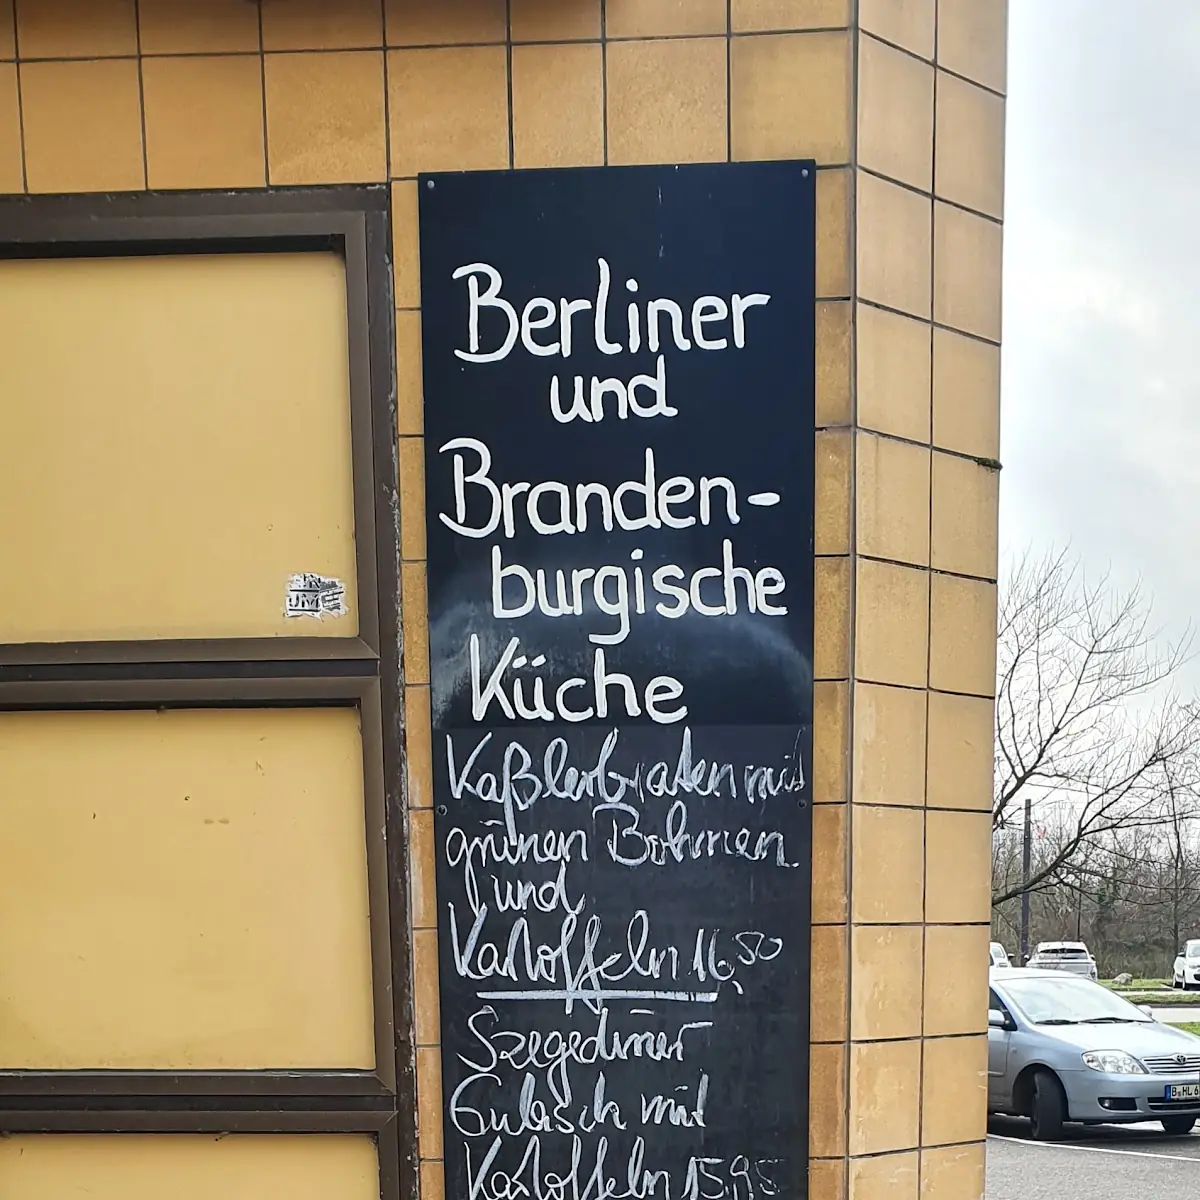 Berliner
und
Branden-
burgische
Küche
Kaßlerbraten mit
grünen Bohnen
und
Kartoffeln 16,50
Szegediner
Gulasch mit
Kartoffeln 15,95
B HL 6